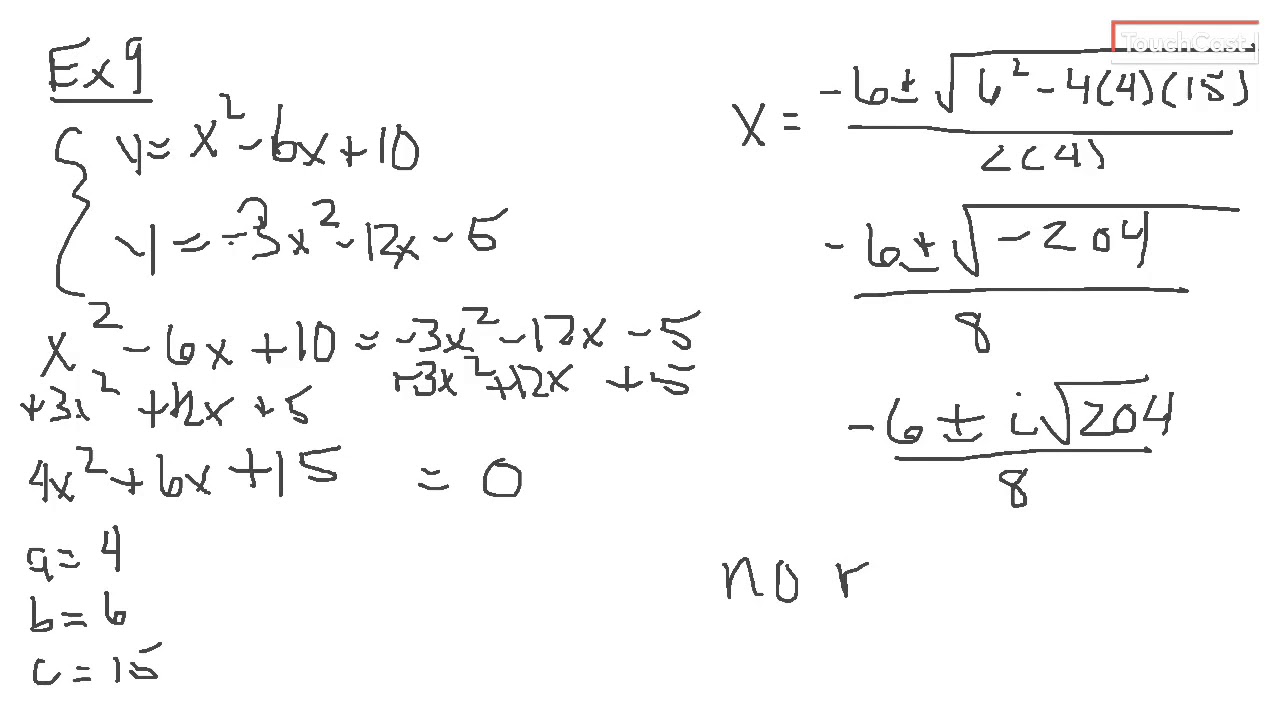 Ex 9
y = x² - 6x + 10
y = -3x² - 12x - 5
x² - 6x + 10 = -3x² - 12x - 5
+3x² + 12x + 5 +3x² + 12x + 5
4x² + 6x + 15 = 0
a = 4
b = 6
c = 15
TouchCast
x = (-6 ± √(6² - 4(4)(15))) / (2(4))
(-6 ± √(-204)) / 8
(-6 ± i√204) / 8
no r